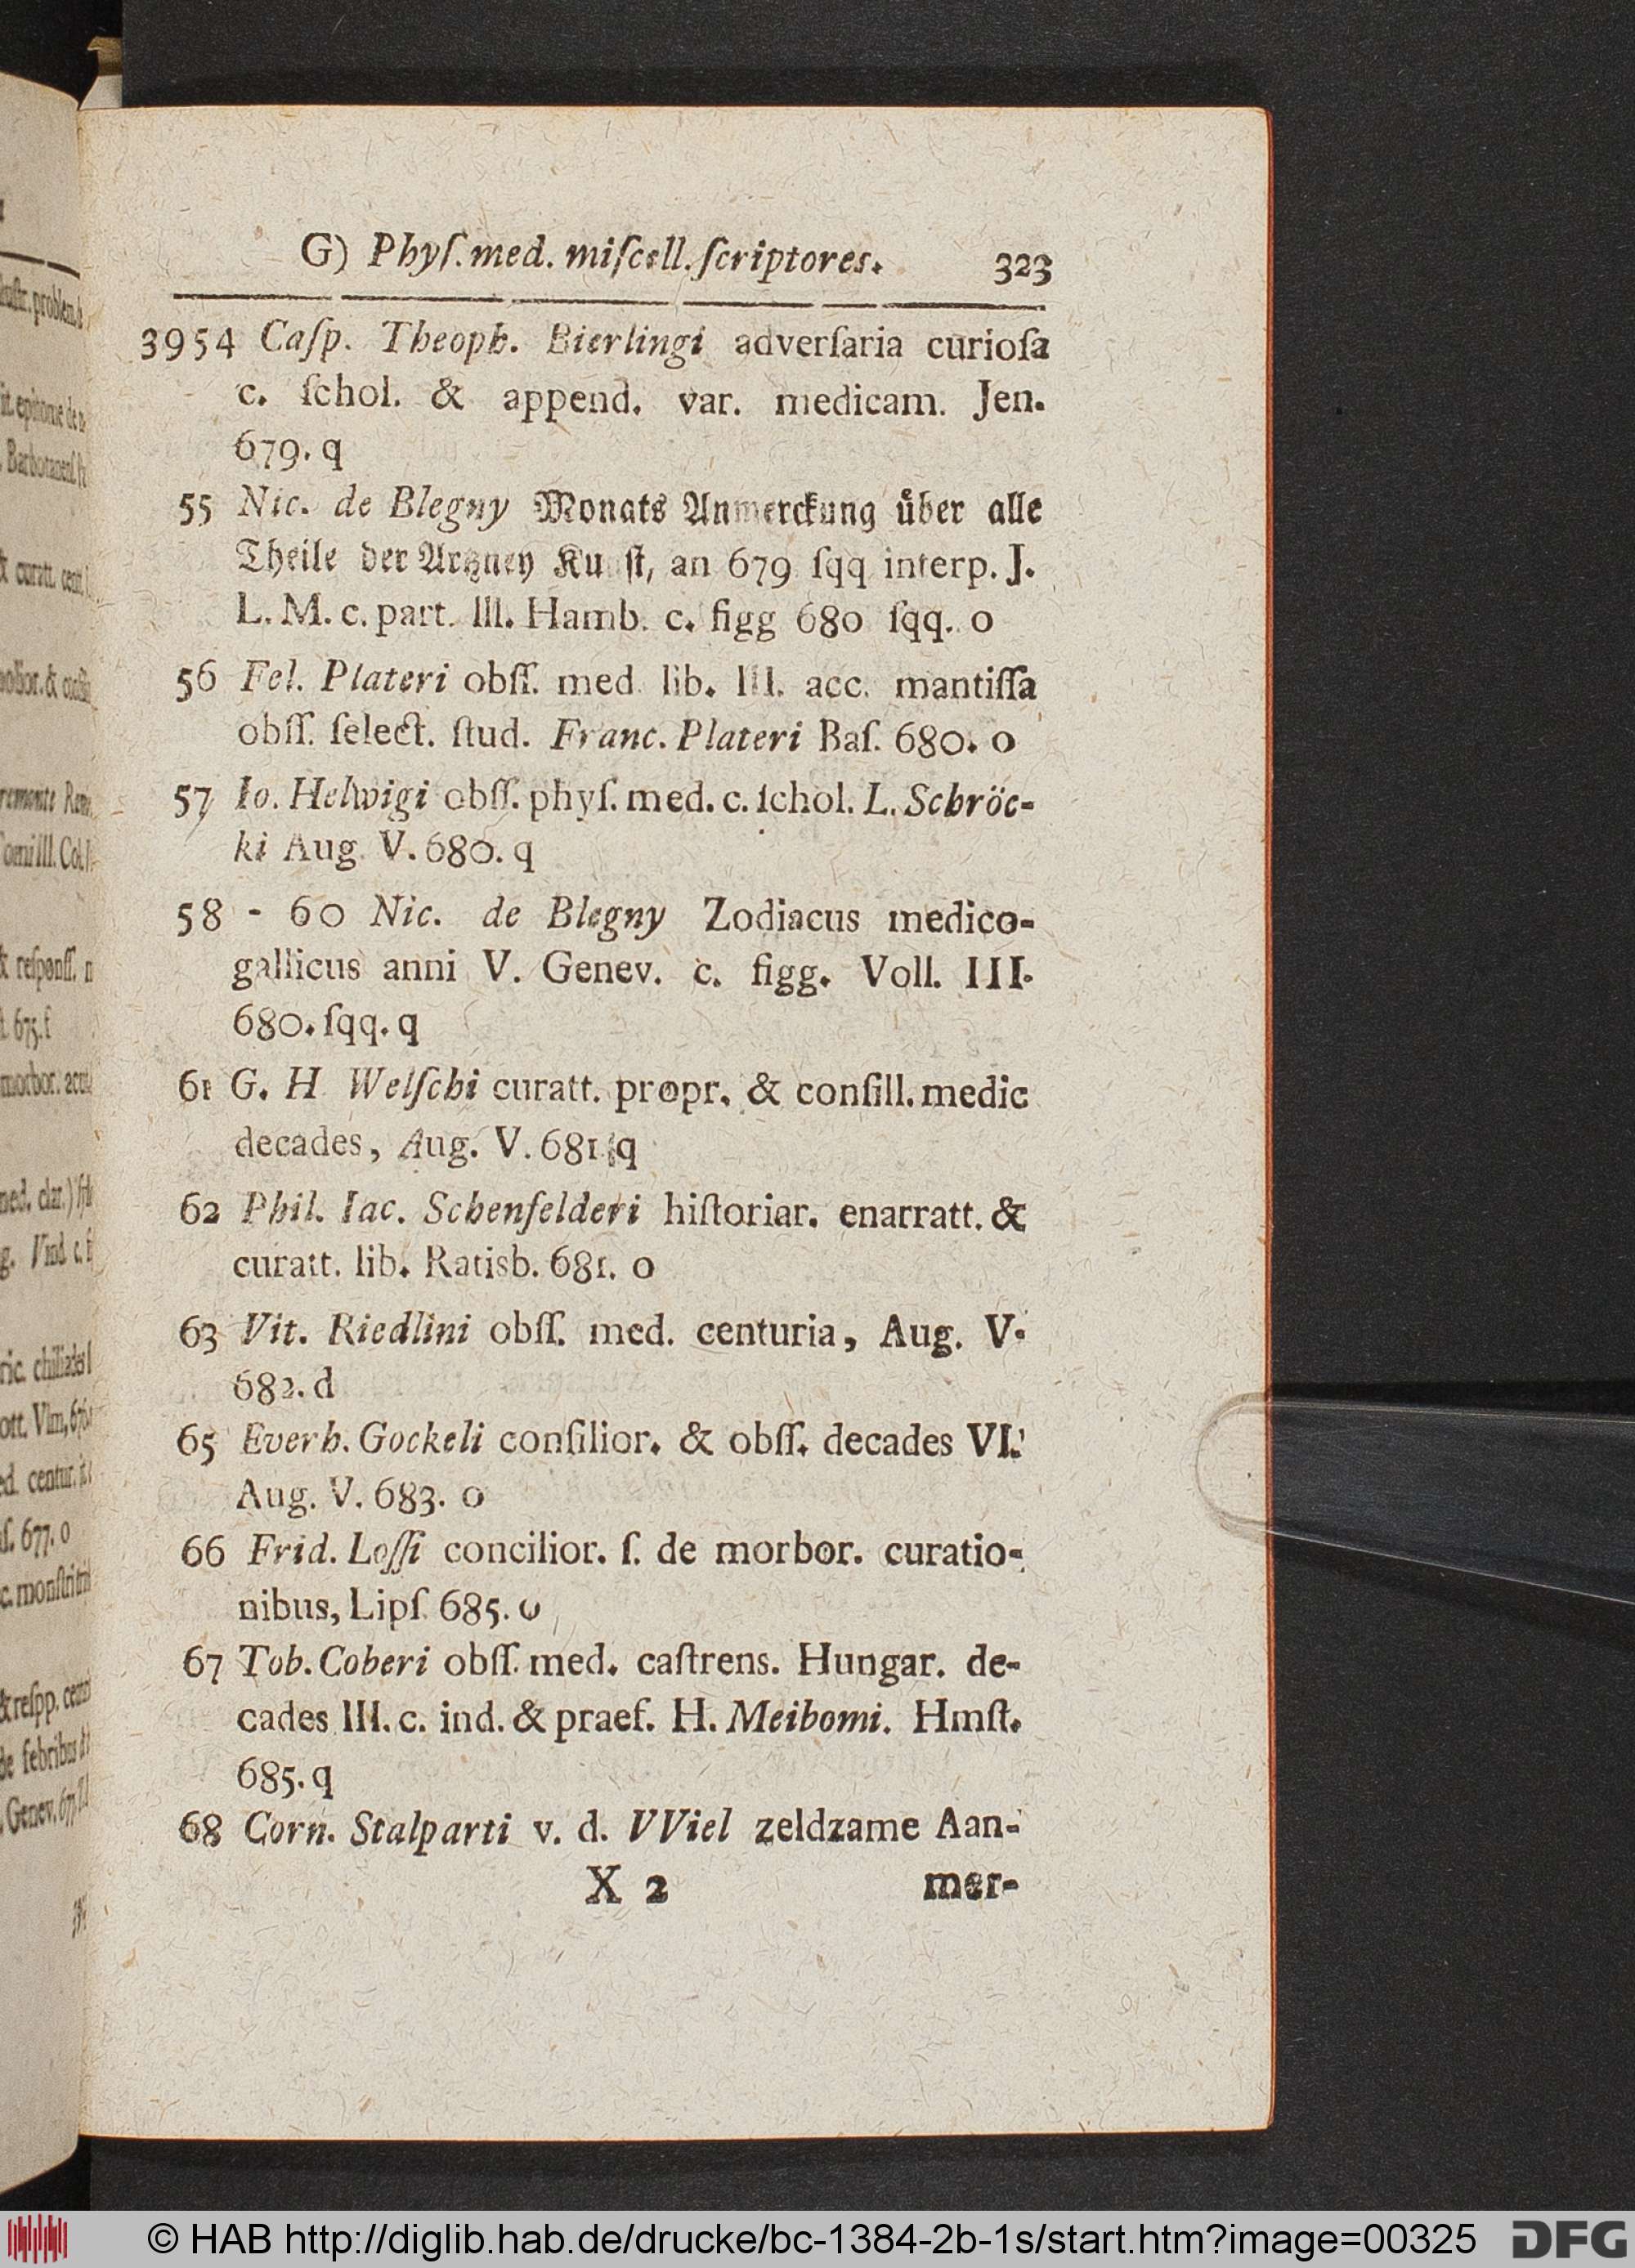 G) Phyſ. med. miſcell. ſcriptores. 323
3954 Caſp. Theoph. Bierlingi adverſaria curioſa
c. ſchol. & append. var. medicam. Jen.
679. q
55 Nic. de Blegny Monats Anmerckung uͤber alle
Theile der Artzney Kunſt, an 679 ſqq interp. J.
L. M. c. part. III. Hamb. c. figg 680 ſqq. o
56 Fel. Plateri obſſ. med. lib. III. acc. mantiſſa
obſſ. ſelect. ſtud. Franc. Plateri Baſ. 680. o
57 Io. Helwigi obſſ. phyſ. med. c. ſchol. L. Schröc-
ki Aug. V. 680. q
58 - 60 Nic. de Blegny Zodiacus medico-
gallicus anni V. Genev. c. figg. Voll. III.
680. ſqq. q
61 G. H Welſchi curatt. propr. & conſill. medic
decades, Aug. V. 681. q
62 Phil. Iac. Schenfelderi hiſtoriar. enarratt. &
curatt. lib. Ratisb. 681. o
63 Vit. Riedlini obſſ. med. centuria, Aug. V.
682. d
65 Everh. Gockeli conſilior. & obſſ. decades VI.
Aug. V. 683. o
66 Frid. Loſſi concilior. ſ. de morbor. curatio-
nibus, Lipſ. 685. o
67 Tob. Coberi obſſ. med. caſtrens. Hungar. de-
cades III. c. ind. & praef. H. Meibomi. Hmſt.
685. q
68 Corn. Stalparti v. d. VViel zeldzame Aan-
X 2 mer-
© HAB http://diglib.hab.de/drucke/bc-1384-2b-1s/start.htm?image=00325 DFG